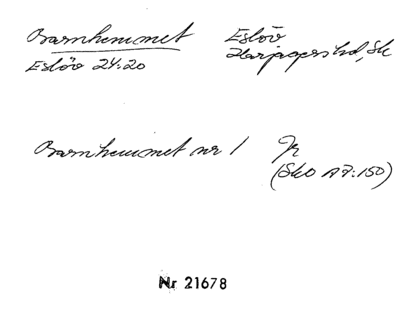 Barnhemmet Eslöv
Eslöv 24:20 Harjagers hd, Sk
Barnhemmet nr 1 Jr
(SkO A7:150)
Nr 21678